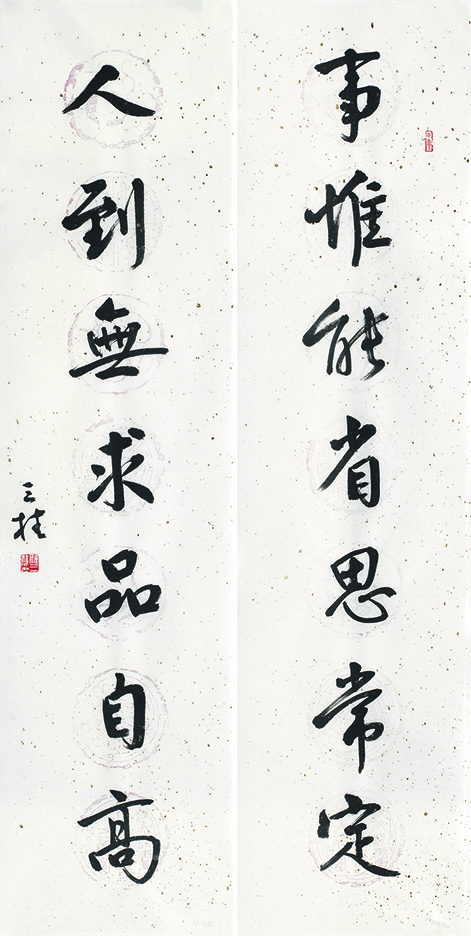 事惟能省思常定
人到無求品自高
三桂